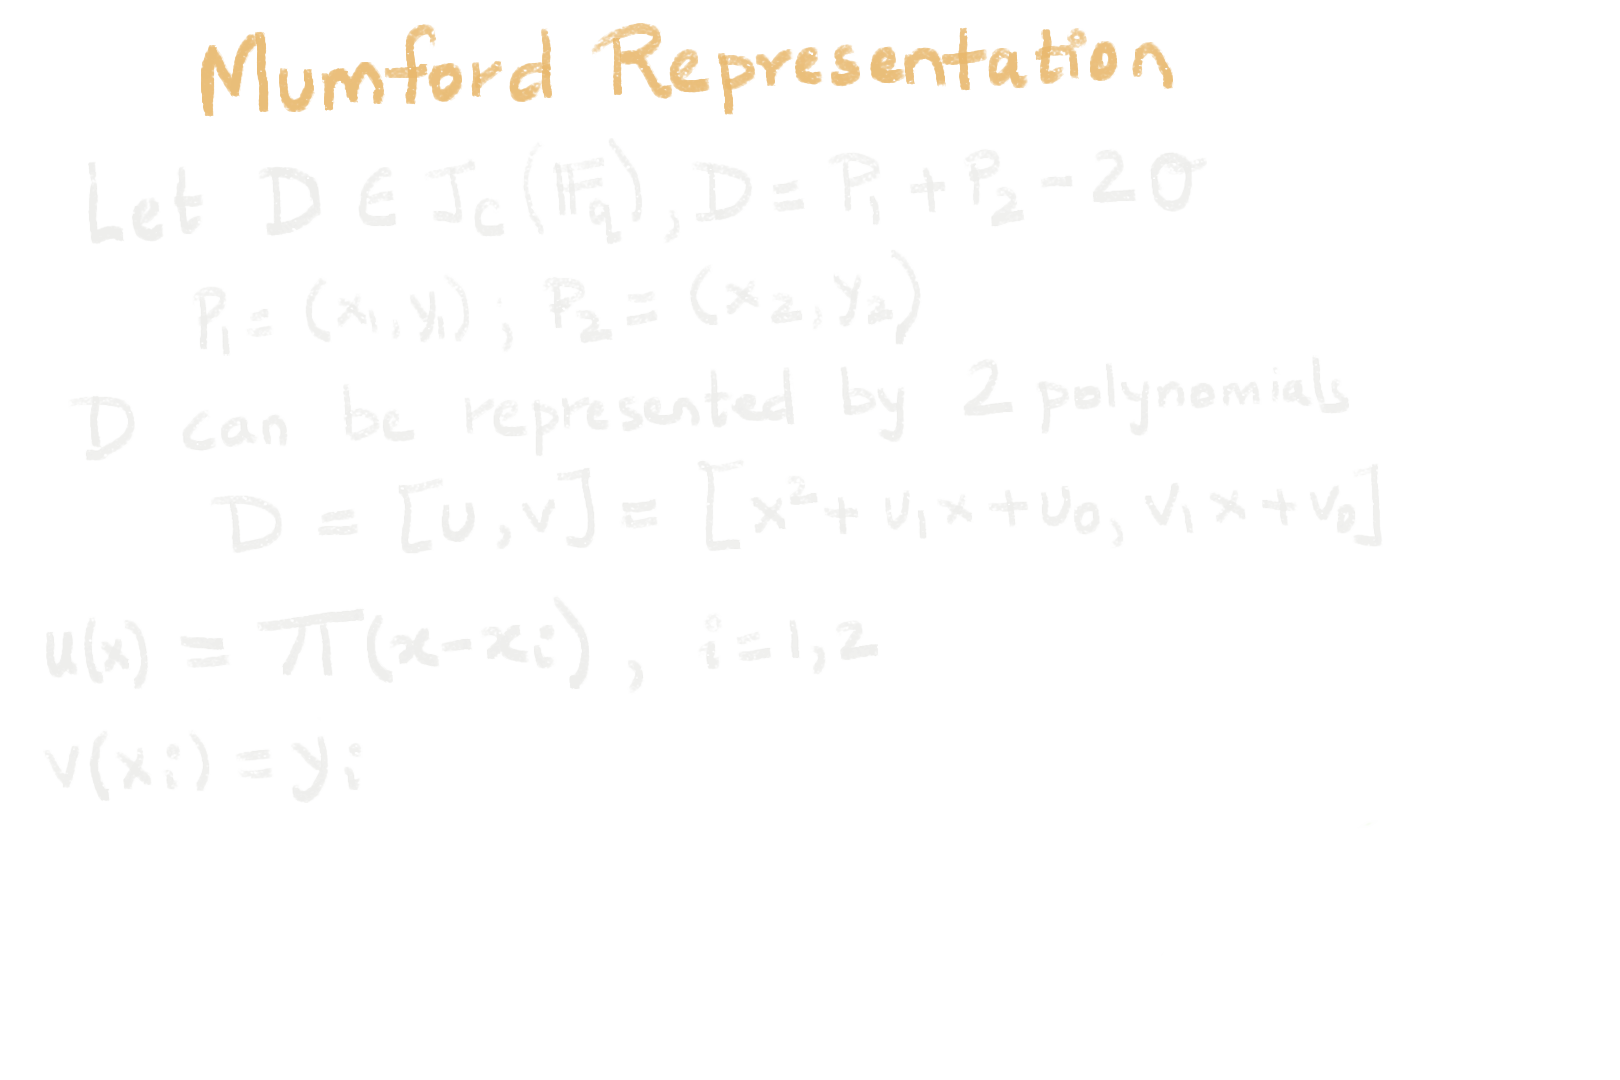 Mumford Representation
Let D ∈ J_C(𝔽_q), D = P₁ + P₂ - 2O
P₁ = (x₁, y₁) ; P₂ = (x₂, y₂)
D can be represented by 2 polynomials
D = [u, v] = [x² + u₁x + u₀, v₁x + v₀]
u(x) = π(x - xi), i = 1, 2
v(xi) = yi